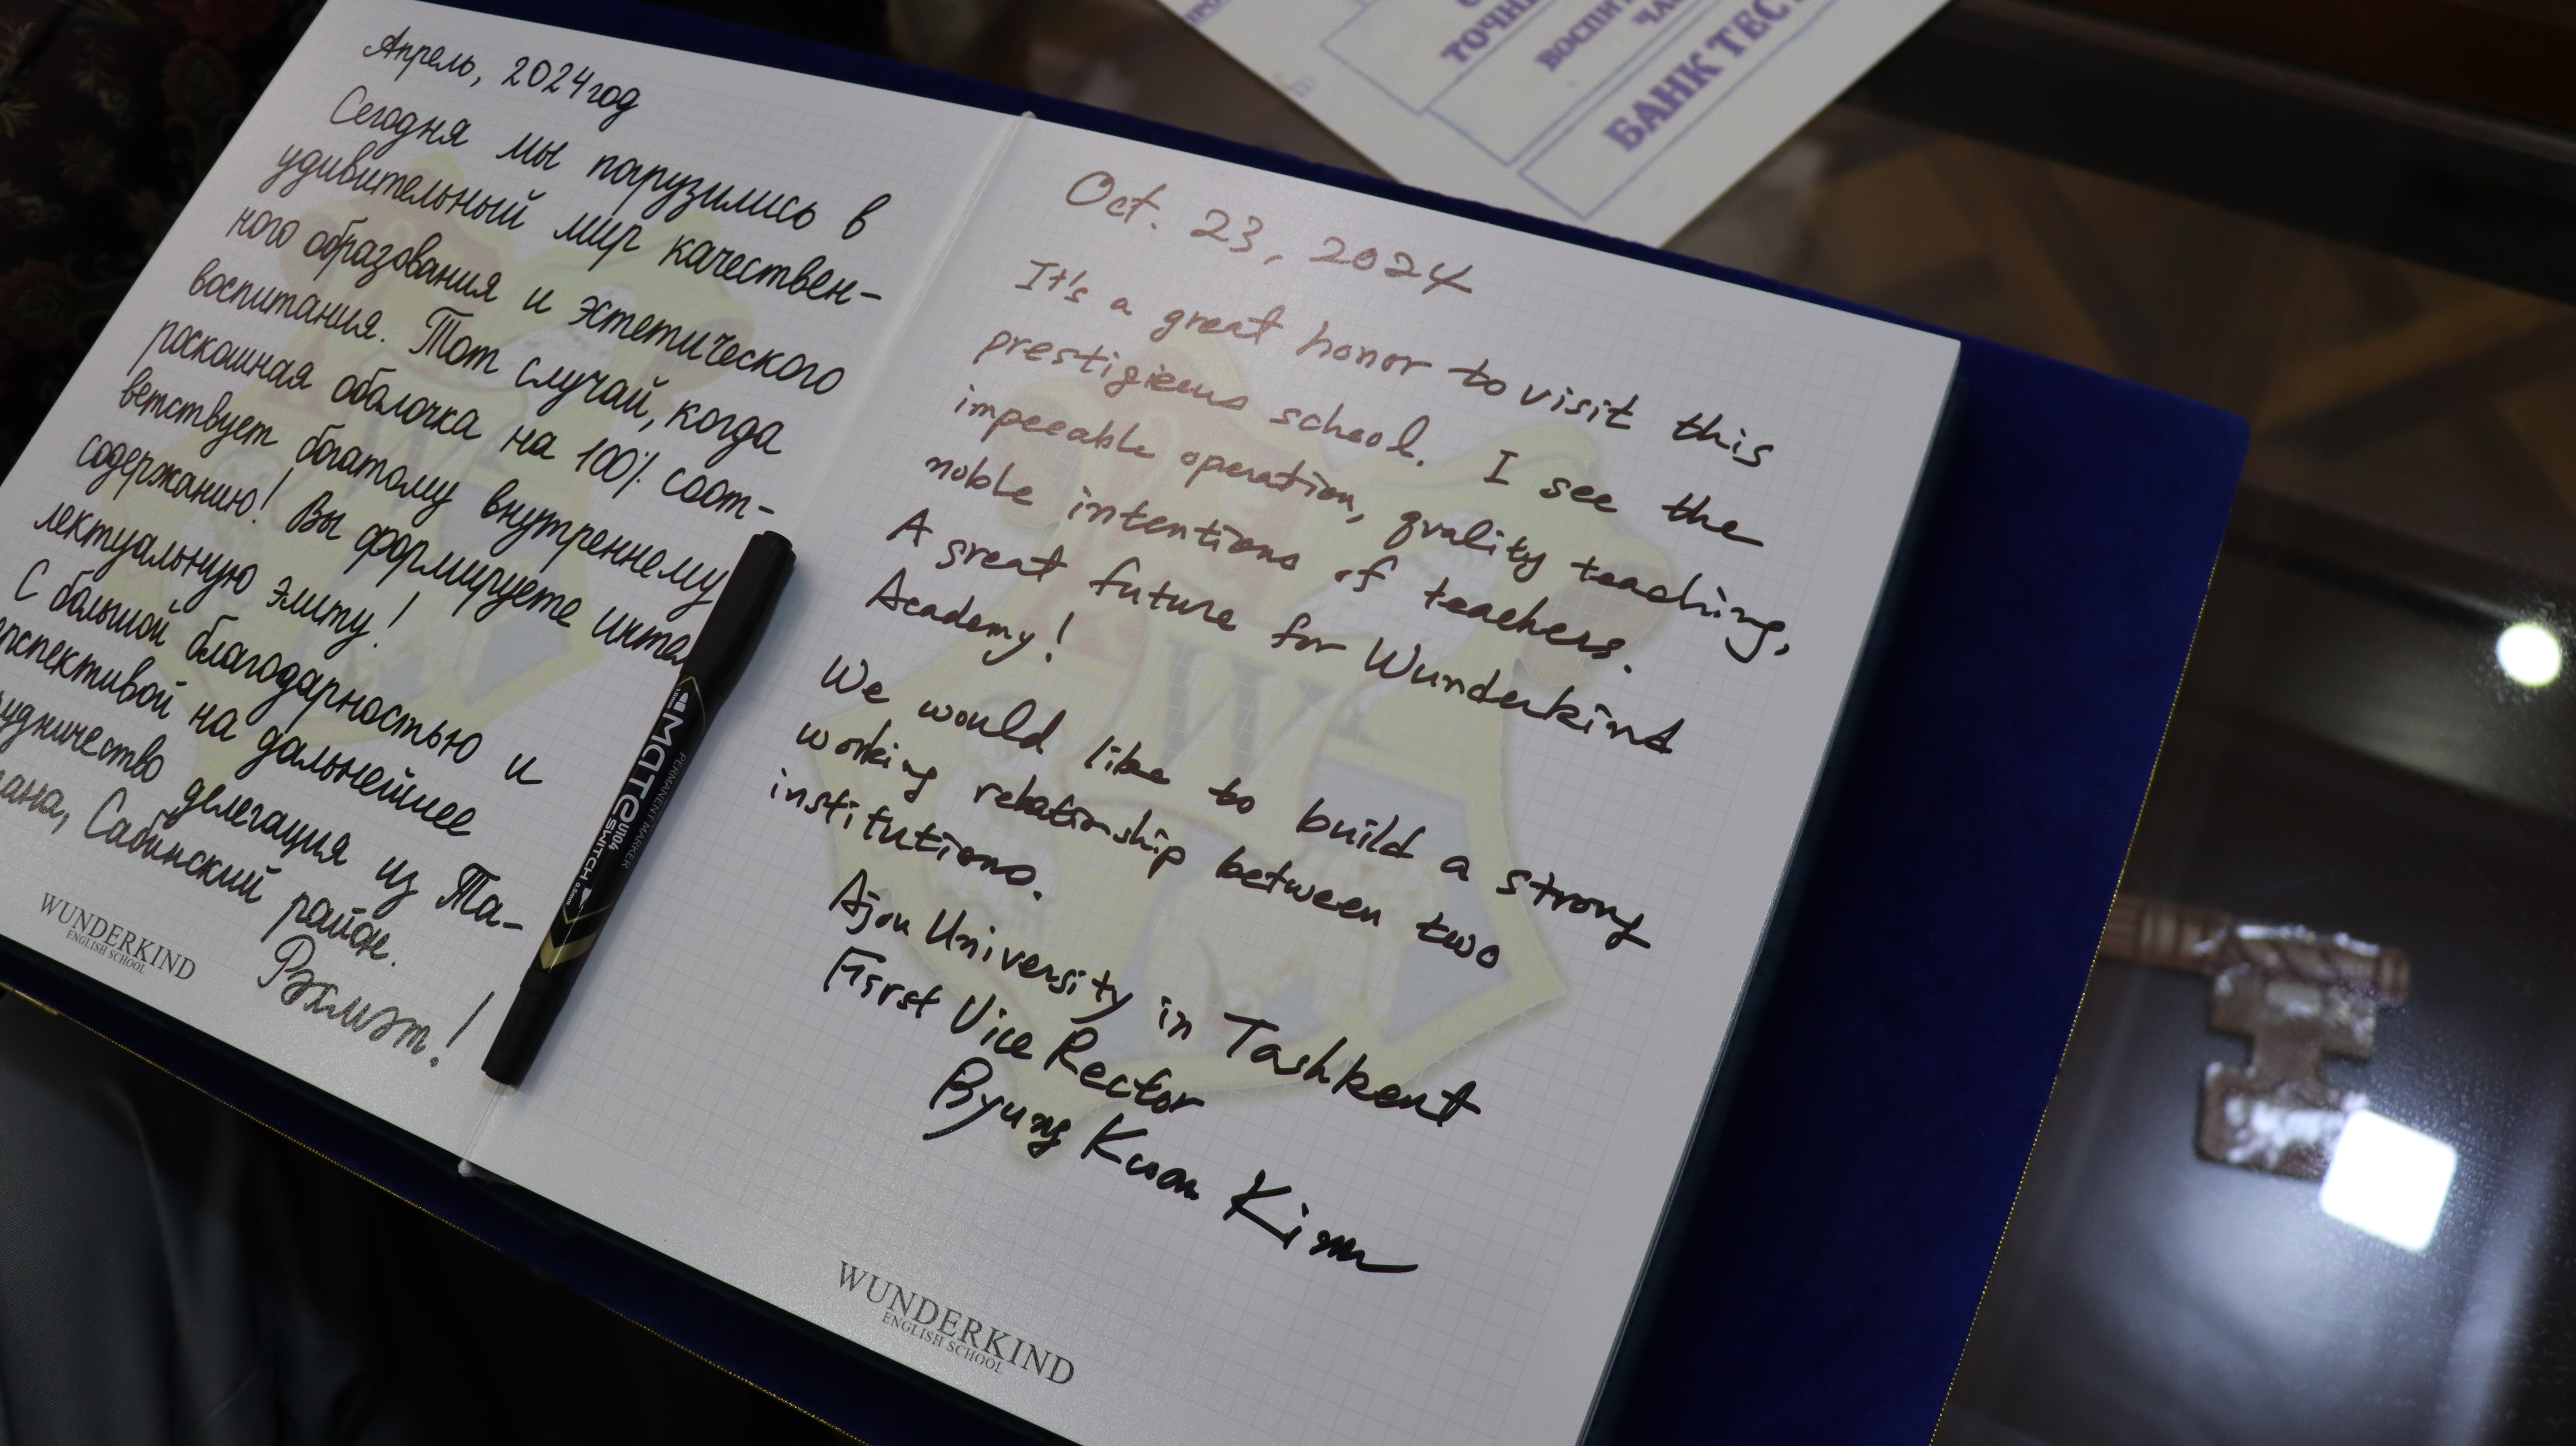 Апрель, 2024 год
Сегодня мы погрузились в
удивительный мир качествен-
ного образования и эстетического
воспитания. Тот случай, когда
роскошная оболочка на 100% соот-
ветствует богатому внутреннему
содержанию! Вы формируете интел
лектуальную элиту!
С большой благодарностью и
рспективой на дальнейшее
удничество делегация из Та-
ана, Сабинский район.
Рәхмәт!
WUNDERKIND
ENGLISH SCHOOL
MATE
U104
SWITCH
PERMANENT MARKER
Oct. 23, 2024
It's a great honor to visit this
prestigieus school. I see the
impeeable operation, quality teaching,
noble intentions of teachers.
A great future for Wunderkind
Academy!
We would like to build a strong
working relationship between two
institutions.
Ajou University in Tashkent
First Vice Rector
Byung Kwan Kim
WUNDERKIND
ENGLISH SCHOOL
ТОЧН
ВОСПИТ
ЧАС
БАНК ТЕСТ